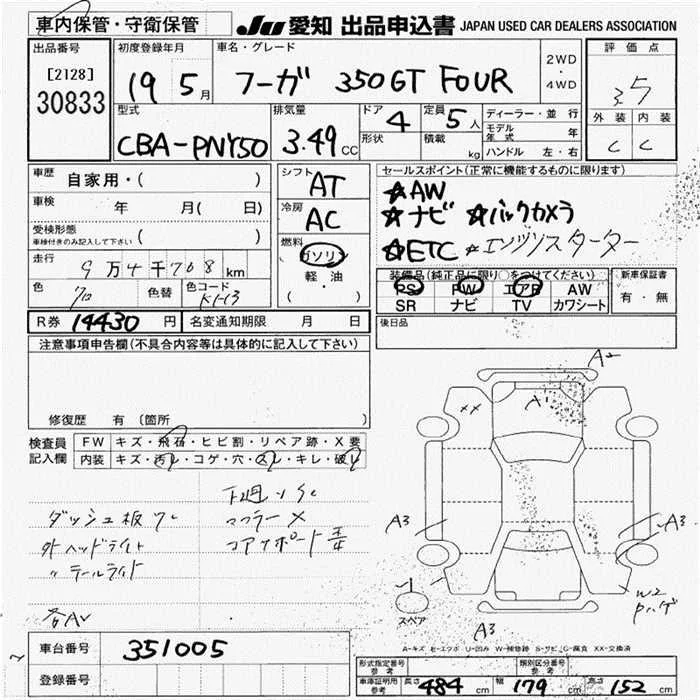 車内保管・守衛保管 JU 愛知 出品申込書 JAPAN USED CAR DEALERS ASSOCIATION
出品番号 初度登録年月 車名・グレード 2WD・4WD 評価点
[2128]
30833 19 5月 フーガ 350GT FOUR 3.5
型式 排気量 ドア 4 定員 5人 ディーラー・並行 外装 内装
CBA-PNY50 3.49cc 形状 積載 kg モデル年式 年 C C
ハンドル 左・右
車歴 自家用・( ) シフト AT セールスポイント(正常に機能するものに限ります)
車検 年 月( 日) 冷房 AC ☆AW
☆ナビ ☆バックカメラ
受検形態 車検付きのみ記入して下さい ( ) 燃料 ガソリン ☆ETC ☆エンジンスターター
走行 9万4千708km 軽・油 装備品(純正品に限り○をつけてください) 新車保証書
色 クロ 色替 色コード KH3 ( ) PS PW エアB AW 有・無
SR ナビ TV カワシート
R券 14430円 名変通知期限 月 日 後日品
注意事項申告欄(不具合内容等は具体的に記入して下さい)
A2
XX A1
修復歴 有 〔箇所
検査員 FW キズ・飛石・ヒビ割・リペア跡・X要
記入欄 内装 キズ・汚レ・コゲ・穴・スレ・キレ・破レ
下廻り SC
ダッシュ板ワレ マフラーX
外ヘッドライト コアサポート A3 A3
〃テールライト
W2
スペア
各AU A3
A-キズ E-エクボ U-凹み W-補修跡 S-サビ C-腐食 XX-交換済
車台番号 351005
形式指定番号 参考 類別区分番号 参考
登録番号 車庫証明用 参考 長さ 484cm 幅 179cm 高さ 152cm